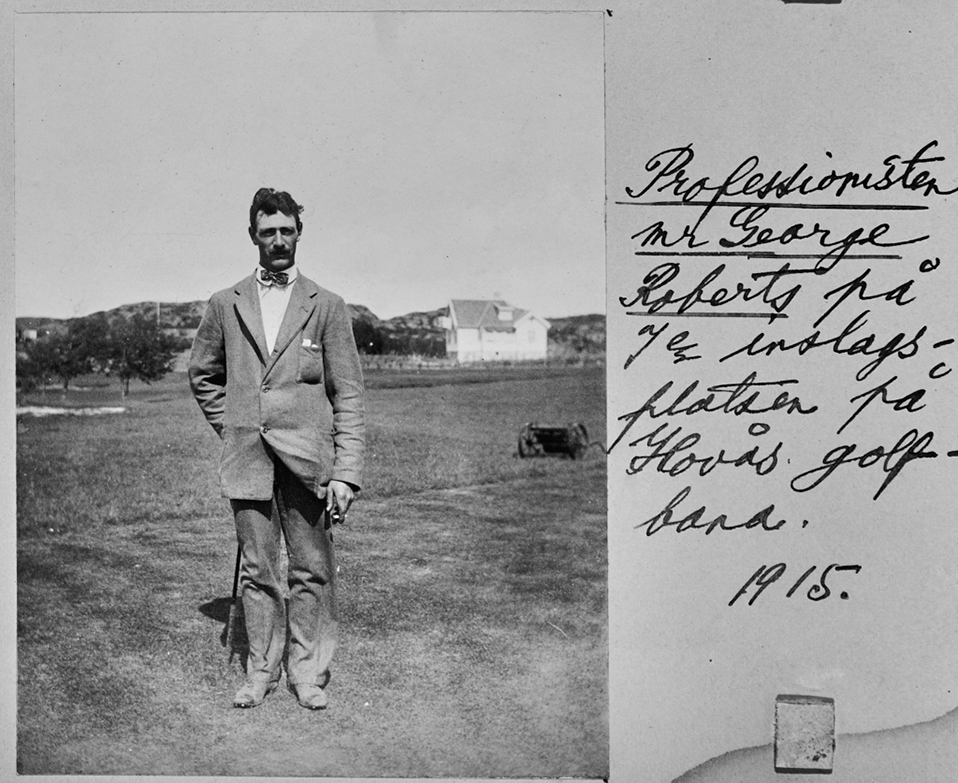 Professionisten
mr George
Roberts på
7er inslags-
platsen på
Hovås golf-
bana.
1915.